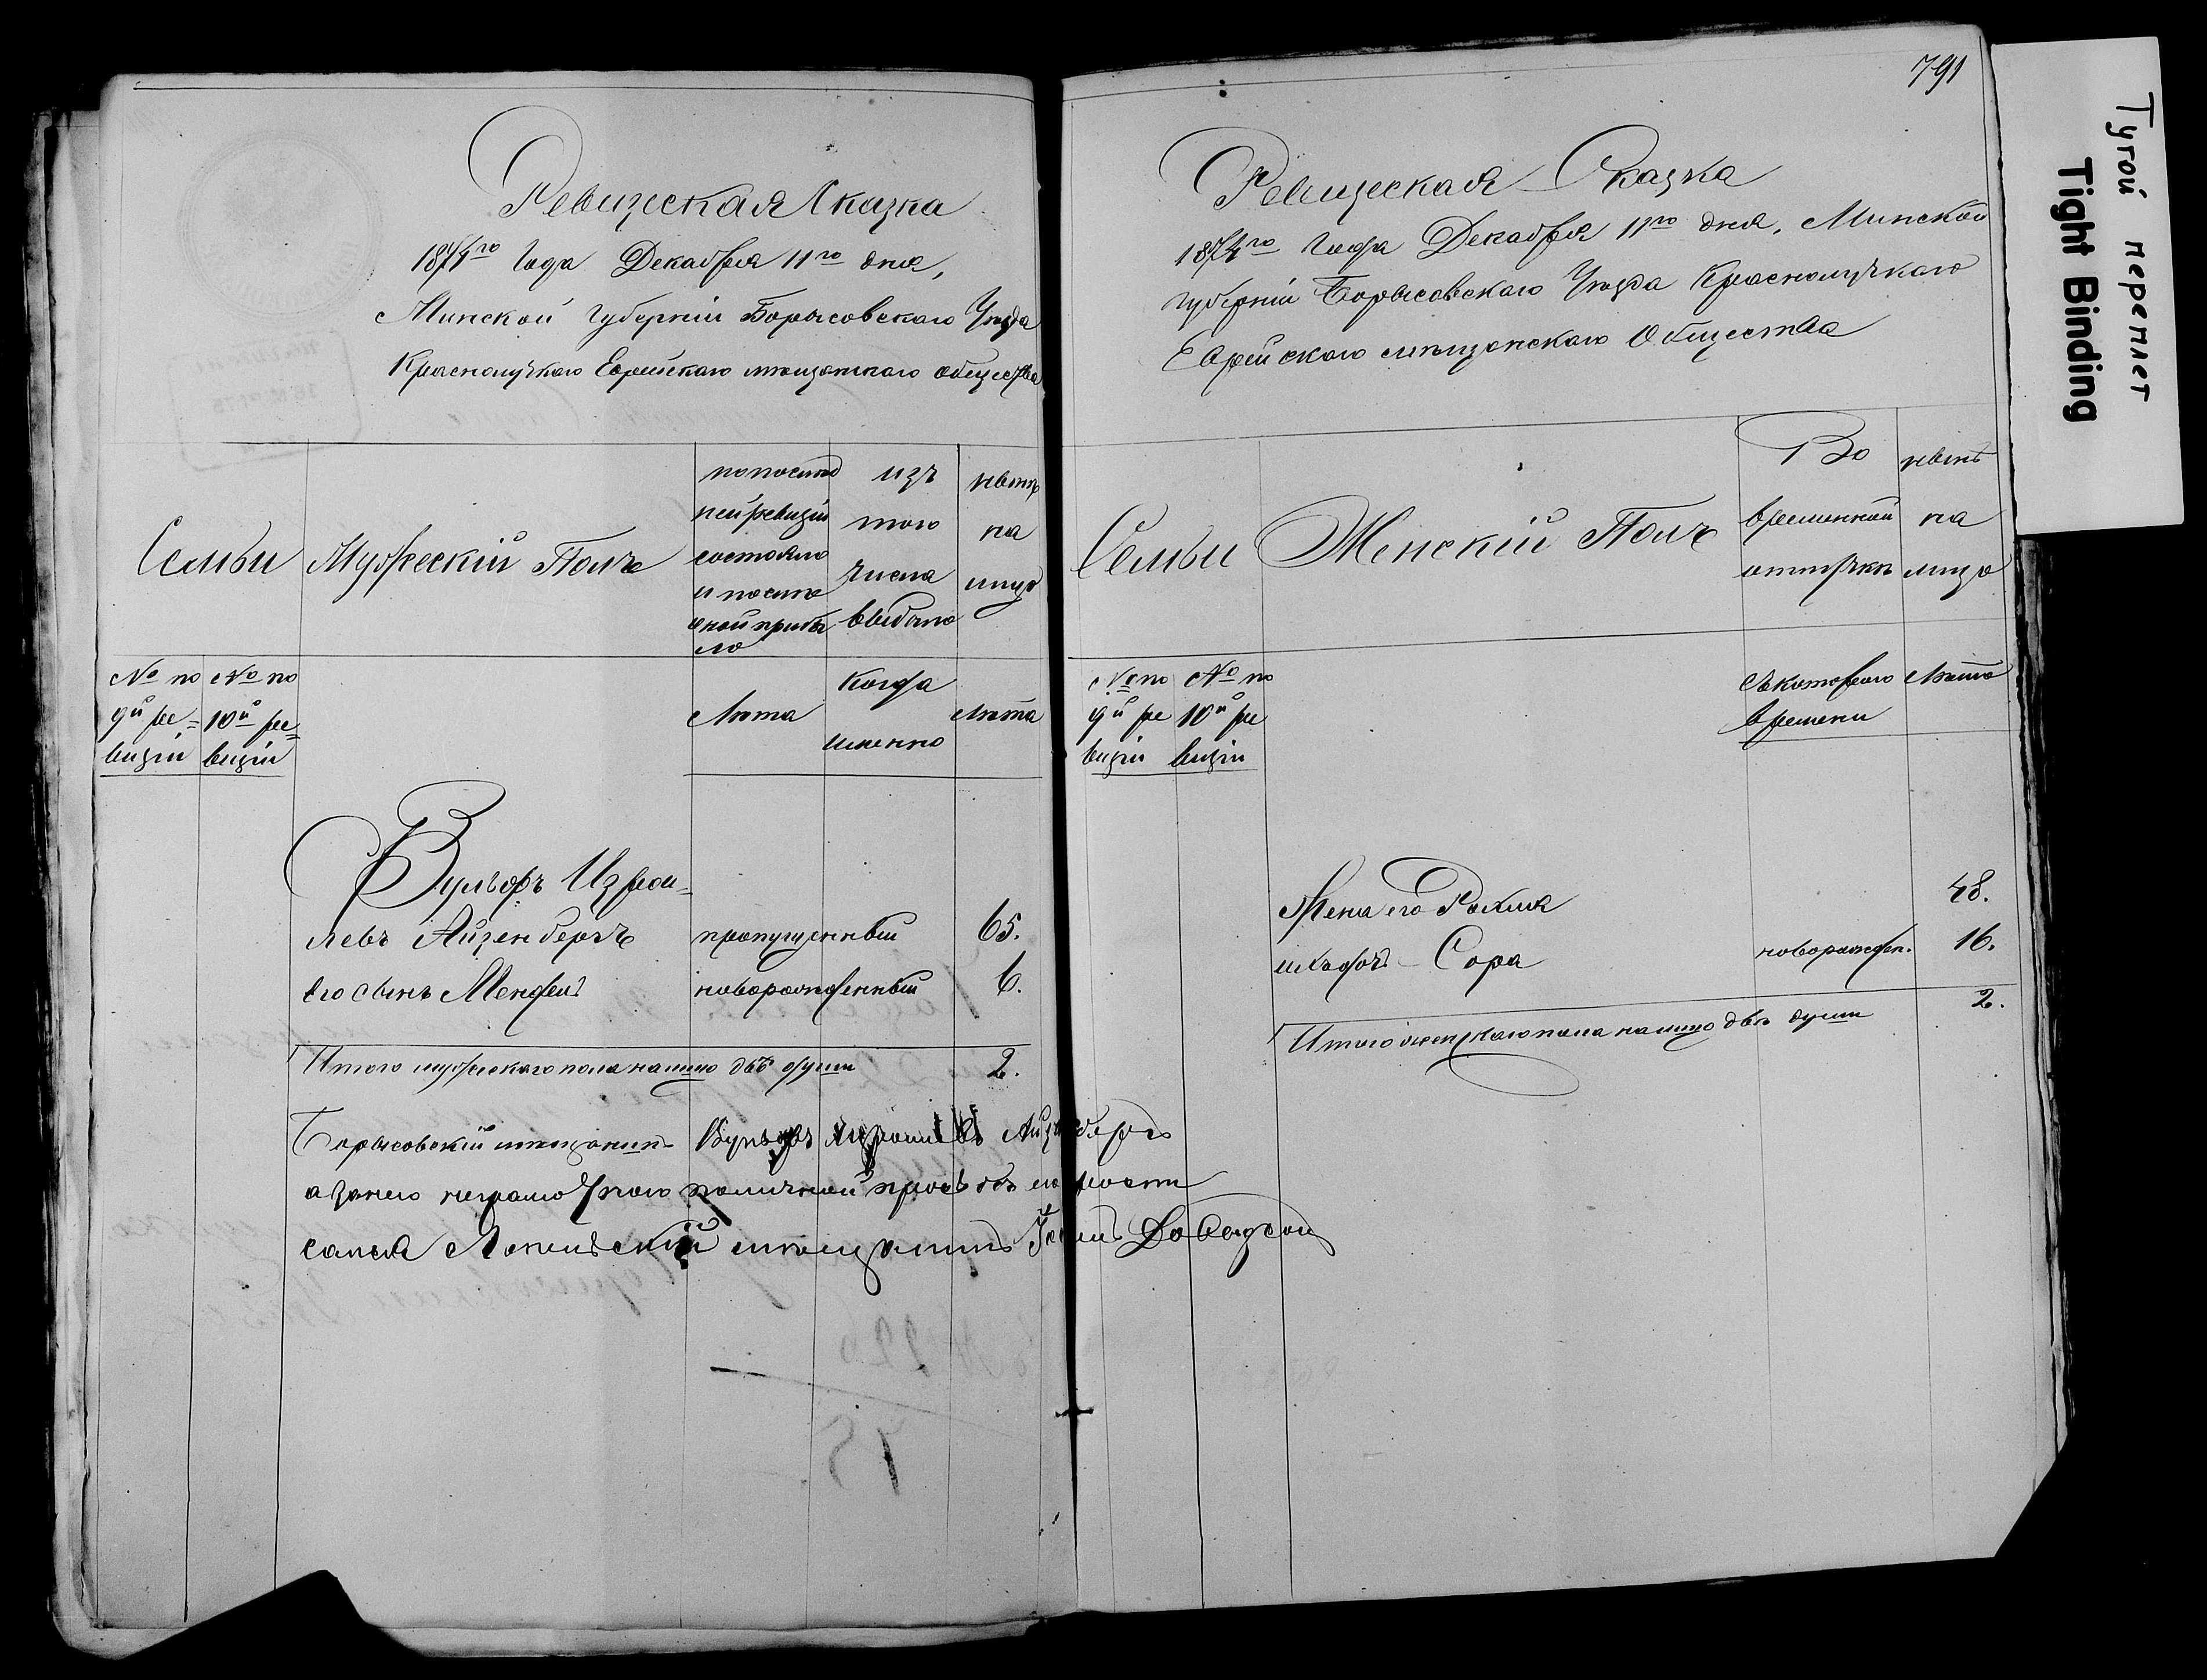 Ревизская Сказка
1874го Года Декабря 11го дня,
Минской губерніи Борысовскаго Уѣзда
Краснолуцкаго Еврейскаго мѣщанскаго общества
Семьи
Мужескій Полъ
по послѣд
ней ревизіи
состояло
и послѣ
оной прибы
ло
изъ
того
числа
выбыло
нынѣ
на
лицо
№ по
9й ре=
визіи
№ по
10й ре=
визіи
Лѣта
когда
именно
Лѣта
Вульфъ Израи-
левъ Айзенбергъ пропущенный 65.
его сынъ Мендель новорожденный 6.
Итого мужескаго пола налицо двѣ души 2.
Борысовскій мѣщанинъ Вульфъ Израилевъ Айзенбергъ
а за него неграмотнаго по личной прозьбѣ его роспи
сался мѣщанинъ Довидсон
791
Ревизская Сказка
1874го Года Декабря 11го дня, Минской
губерніи Борысовскаго Уѣзда Краснолуцкаго
Еврейскаго мѣщанскаго Общества
Семьи
Женскій Полъ
Во
временной
отлучкѣ
нынѣ
на
лицо
№ по
9й ре
визіи
№ по
10й ре
визіи
съ котораго
времени
Лѣта
Жена его Рохля 48.
ихъ дочь Сора новорожден. 16.
Итого женскаго пола налицо двѣ души 2.
Тугой переплет
Tight Binding